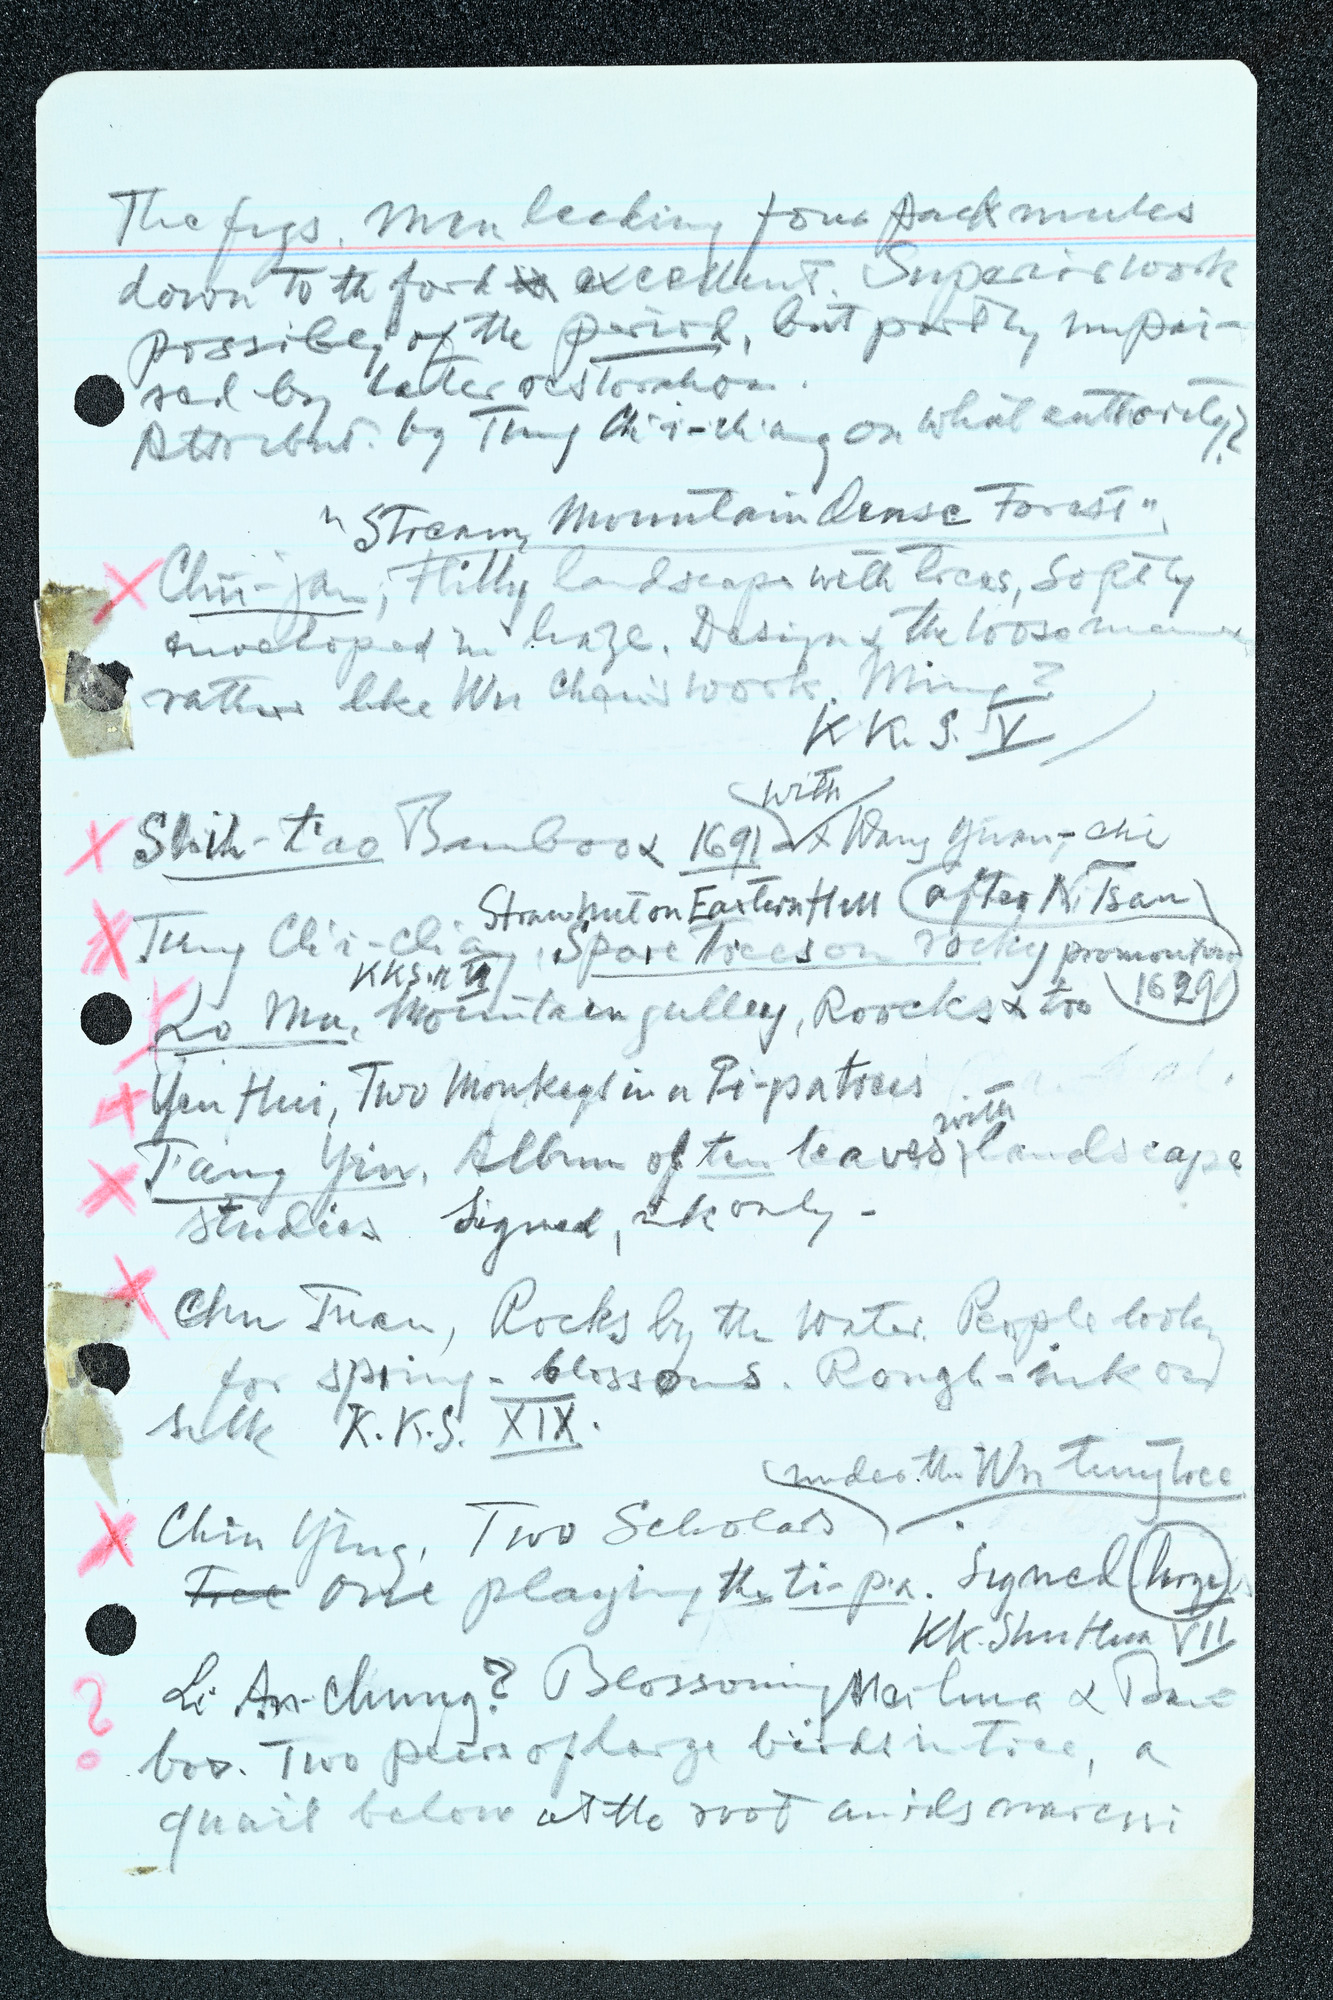 The figs. Men leading four pack mules
down to th ford excellent. Superior work
possibly of the period, but partly impai-
red by later restoration.
Attribut. by Tung Ch'i-ch'ang on what authority?
"Stream, Mountain Dense Forest".
Chü-jan, Hilly landscape with trees, Softly
enveloped in haze. Design & the loose manner
rather like Wu Chen's work. Ming?
K.K.S. V
with
Shih-t'ao Bamboo & 1691 Wang Yüan-chi
Straw hut on Eastern Hill (after Ni Tsan
Tung Ch'i-ch'ang, Spare trees on rocky promontory
KKS. II 1629)
Lo Mu, Mountain gulley, Roocks & too
Yen Hui, Two Monkeys in a Pi-pa trees
with
T'ang Yin, Album of ten leaves, landscape
studies Signed, ink only -
Chu Tuan, Rocks by the water. People looking
for spring-blossoms. Rough-ink on
silk K.K.S. XIX.
under the Wu tung tree
Chiu Ying, Two Scholars
Tree One playing the ti-pa. Signed large
KK. Shu Hua VII
? Li An-chung? Blossoming Mei hua & Bam
boo. Two pairs of large birds in tree, a
quail below at the root amids narcissi